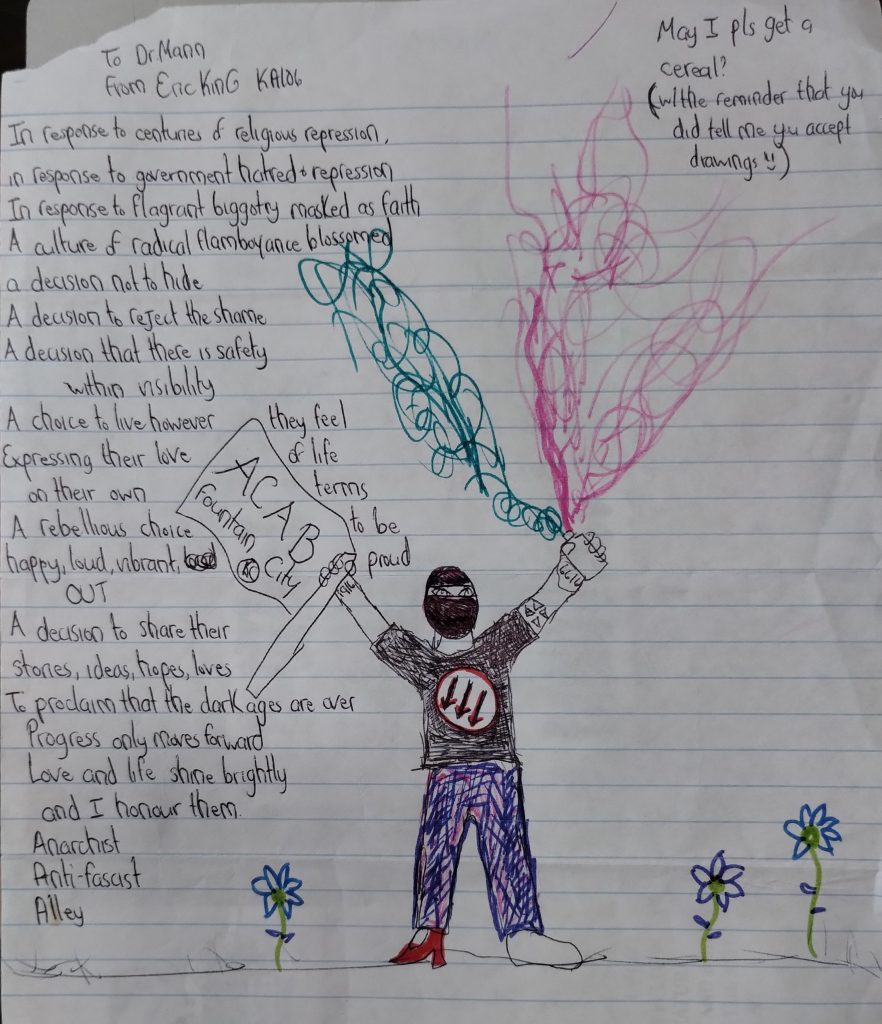 To Dr. Mann
From Eric KinG
May I pls get a
cereal?
(w/the reminder that you
did tell me you accept
drawings)
In response to centuries of religious repression,
in response to government hatred + repression
In response to flagrant biggotry masked as faith
A culture of radical flamboyance blossomed
a decision not to hide
A decision to reject the shame
A decision that there is safety
within visibility
A choice to live however they feel
Expressing their love of life
on their own terms
A rebellious choice to be
happy, loud, vibrant, proud
OUT
A decision to share their
stories, ideas, hopes, loves
To proclaim that the dark ages are over
Progress only moves forward
Love and life shine brightly
and I honour them.
Anarchist
Anti-fascist
Alley
ACAB
Fountain
City